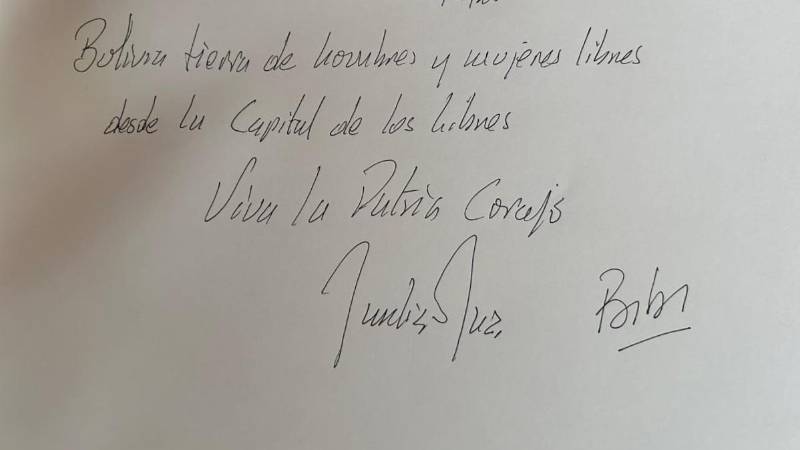 Bolivia tierra de hombres y mujeres libres
desde la Capital de los libres
Viva la Patria Carajo